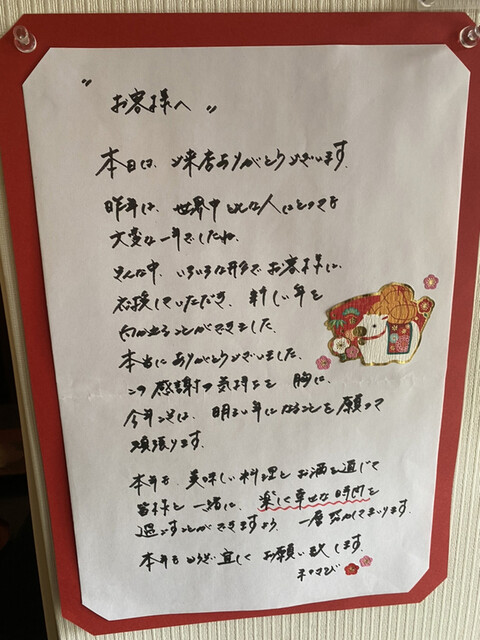 "お客様へ"
本日は、ご来店ありがとうございます。
昨年は、世界中どんな人にとっても
大変な一年でしたね。
そんな中、いろいろな形でお客様に、
応援していただき、新しい年を
向かえることができました。
本当にありがとうございました。
この感謝の気持ちを胸に、
今年こそは、明るい年になることを願って
頑張ります。
本年も、美味しい料理とお酒を通じて
皆様と一緒に、楽しく幸せな時間を
過ごすことができますよう、一層努力してまいります。
本年もどうぞ宜しくお願い致します。